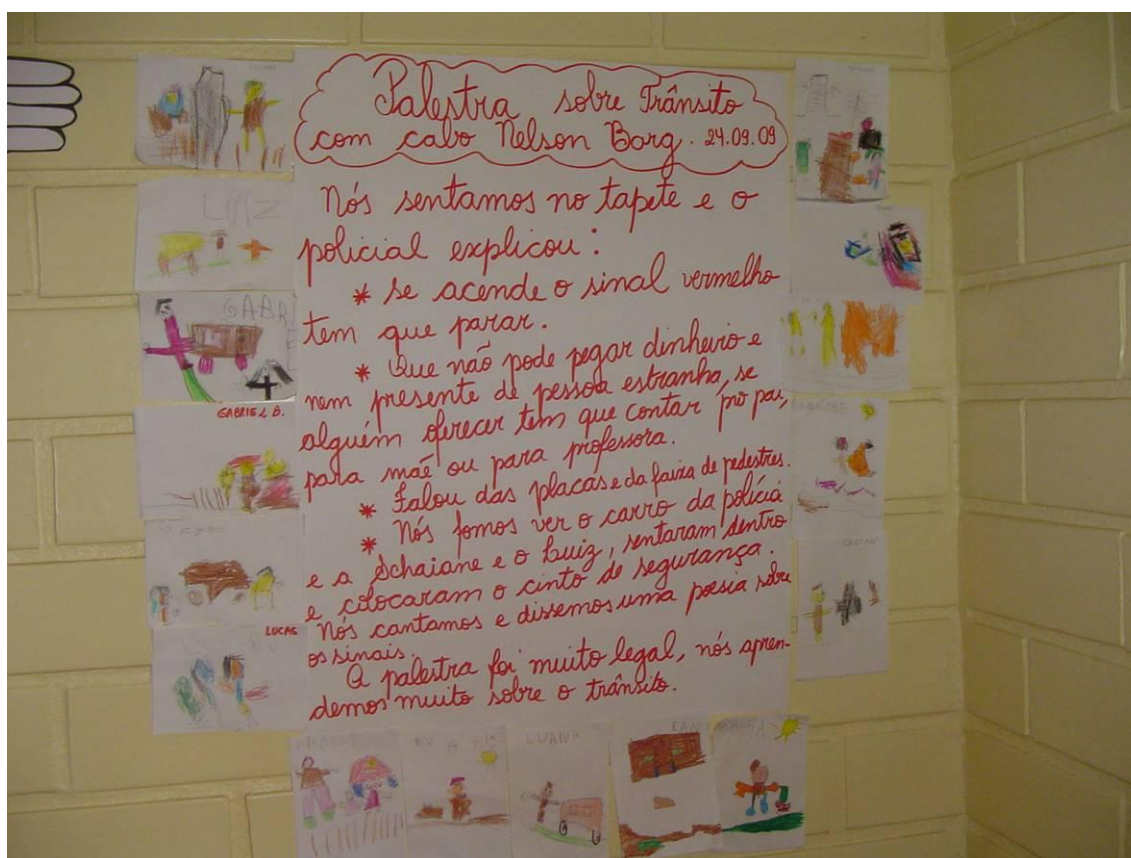 Palestra sobre Trânsito
com cabo Nelson Borg. 24.09.09
Nós sentamos no tapete e o
policial explicou:
* se acende o sinal vermelho
tem que parar.
* Que não pode pegar dinheiro e
nem presente de pessoa estranha, se
alguém oferecer tem que contar pro pai,
para mãe ou para professora.
* Falou das placas e da faixa de pedestres.
* Nós fomos ver o carro da polícia
e a Schaiane e o Luiz, sentaram dentro
e colocaram o cinto de segurança.
Nós cantamos e dissemos uma poesia sobre
os sinais.
A palestra foi muito legal, nós apren-
demos muito sobre o trânsito.
GABR
GABRIEL B.
LUCAS
LUANA